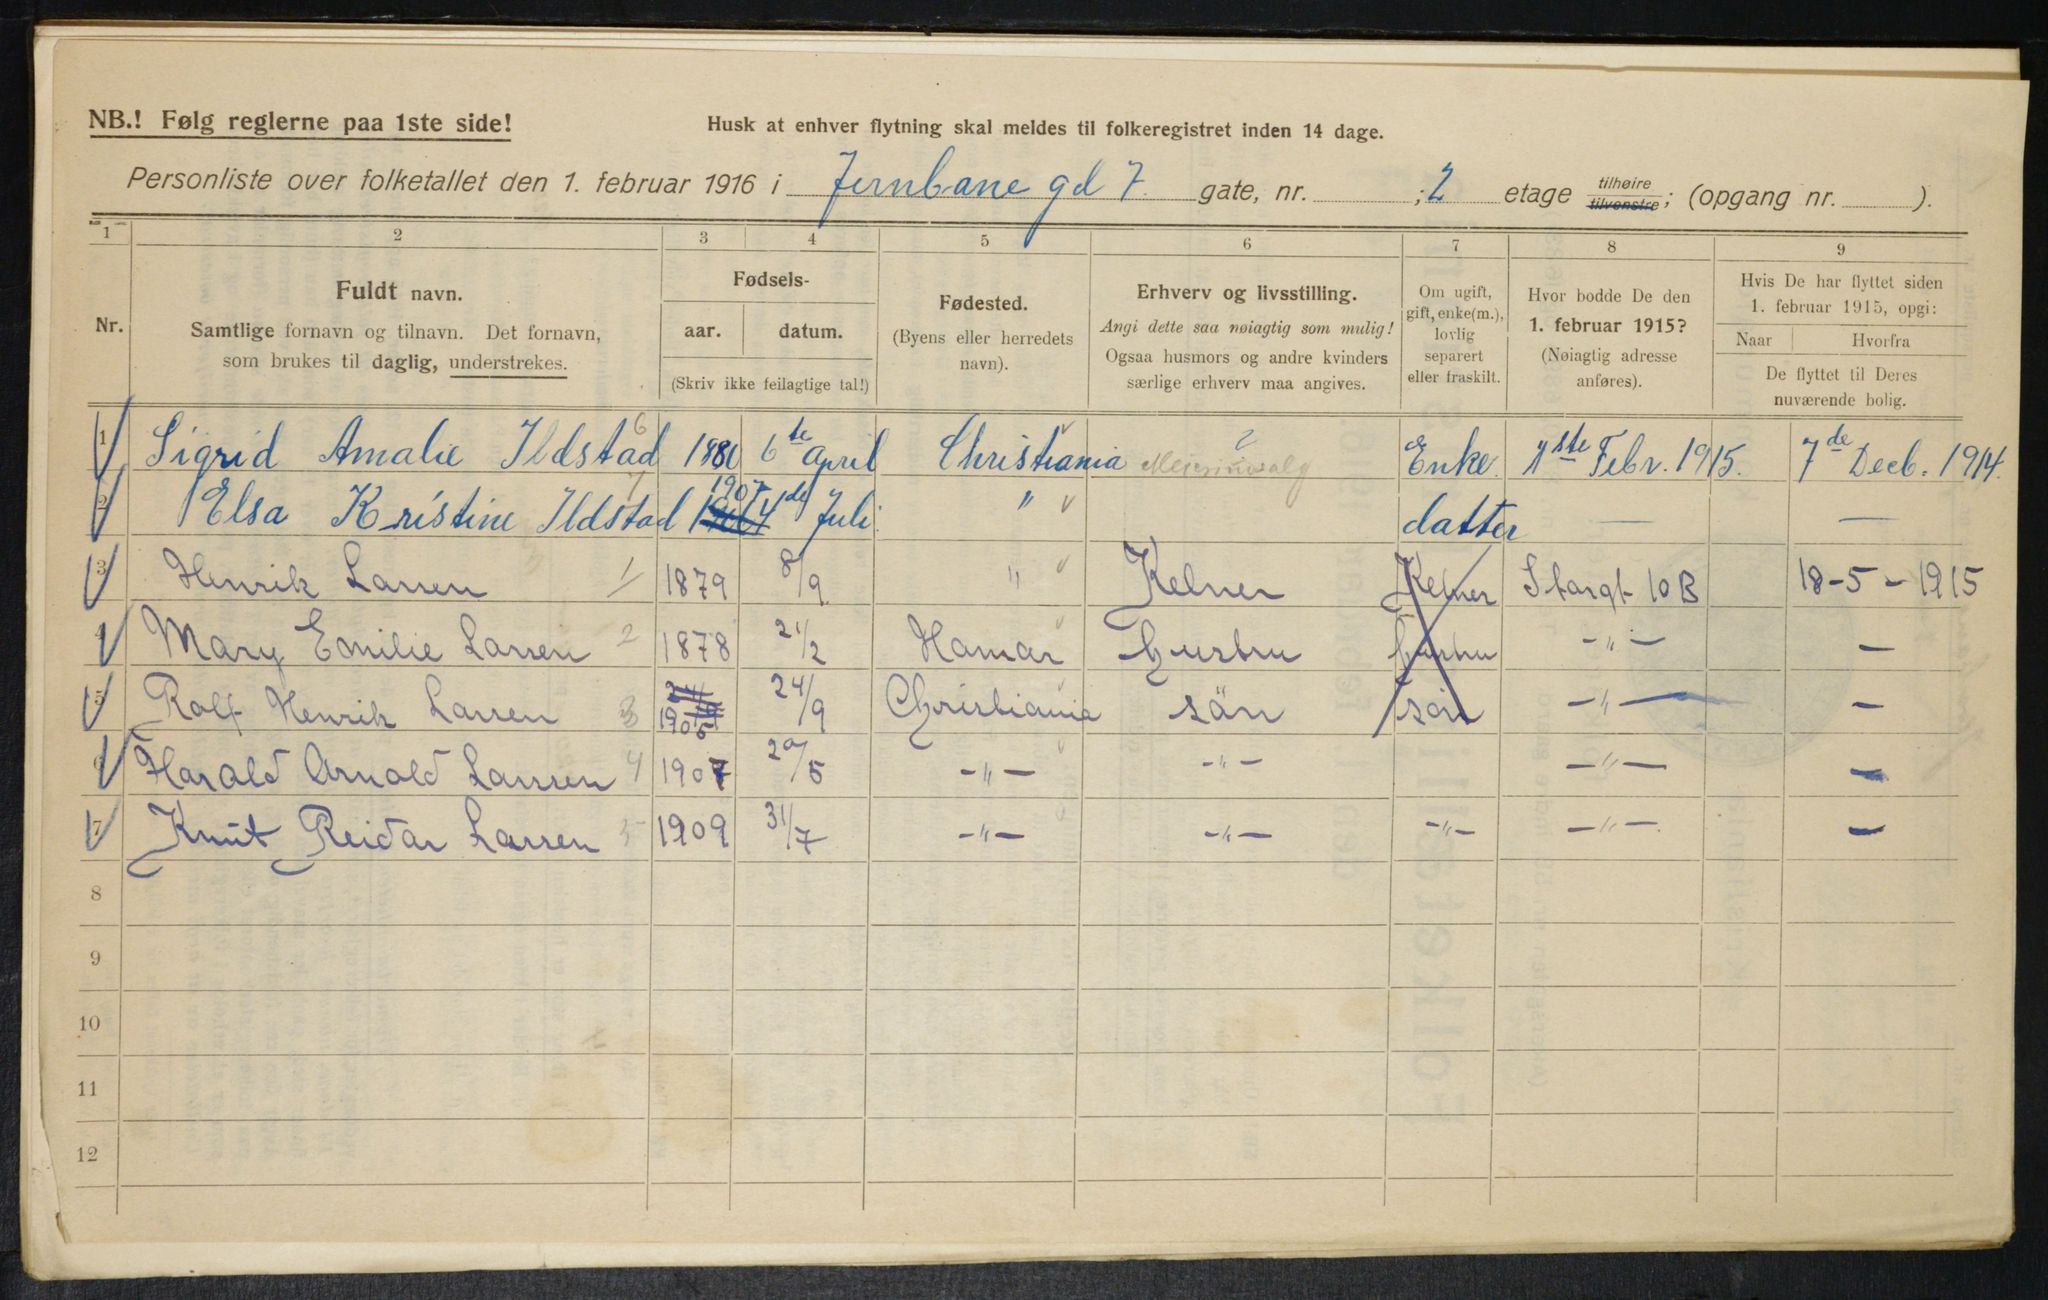 NB.! Følg reglerne paa 1ste side!
Husk at enhver flytning skal meldes til folkeregistret inden 14 dage.
Personliste over folketallet den 1. februar 1916 i Jernbane gd 7 gate, nr. ; 2 etage tilhøire tilvenstre; (opgang nr. ).
1 2 3 4 5 6 7 8 9
Nr.
Fuldt navn.
Samtlige fornavn og tilnavn. Det fornavn,
som brukes til daglig, understrekes.
Fødsels-
aar. datum.
(Skriv ikke feilagtige tal!)
Fødested.
(Byens eller herredets
navn).
Erhverv og livsstilling.
Angi dette saa nøiagtig som mulig!
Ogsaa husmors og andre kvinders
særlige erhverv maa angives.
Om ugift,
gift, enke(m.),
lovlig
separert
eller fraskilt.
Hvor bodde De den
1. februar 1915?
(Nøiagtig adresse
anføres).
Hvis De har flyttet siden
1. februar 1915, opgi:
Naar Hvorfra
De flyttet til Deres
nuværende bolig.
1 Sigrid Amalie Ildstad 6 1880 6te April Christiania Enke 1ste Febr. 1915. 7de Decb. 1914.
2 Elsa Kristine Ildstad 7 1907 4de Juli " datter — —
3 Henrik Larsen 1 1879 8/9 " Kelner Kelner Storgt 10B 18-5-1915
4 Mary Emilie Larsen 2 1878 21/2 Hamar husbru husbru -"- —
5 Rolf Henrik Larsen 3 1905 24/9 Christiania sön sön -"- —
6 Harald Arnold Larsen 4 1907 20/5 -"- -"- -"- —
7 Knut Reidar Larsen 5 1909 31/7 -"- -"- -"- -"- —
8
9
10
11
12